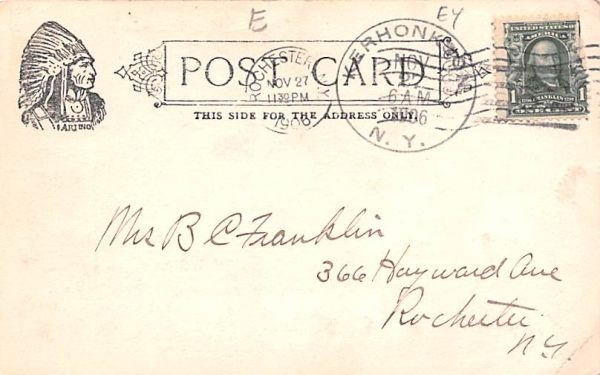 E
EY
POST CARD
THIS SIDE FOR THE ADDRESS ONLY.
ROCHESTER, N.Y.
NOV 27
11 30 PM
1906
KERHONKSON
NOV
6 AM
N. Y.
UNITED STATES OF
AMERICA
1 1
FRANKLIN
Mrs B C Franklin
366 Hayward Ave
Rochester
N.Y.